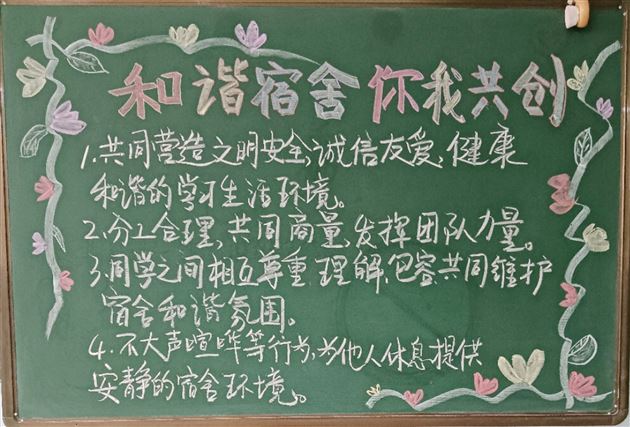 和谐宿舍 你我共创
1.共同营造文明安全,诚信友爱,健康
和谐的学习生活环境。
2.分工合理,共同商量,发挥团队力量。
3.同学之间相互尊重,理解,包容,共同维护
宿舍和谐氛围。
4.不大声喧哗等行为,为他人休息提供
安静的宿舍环境。